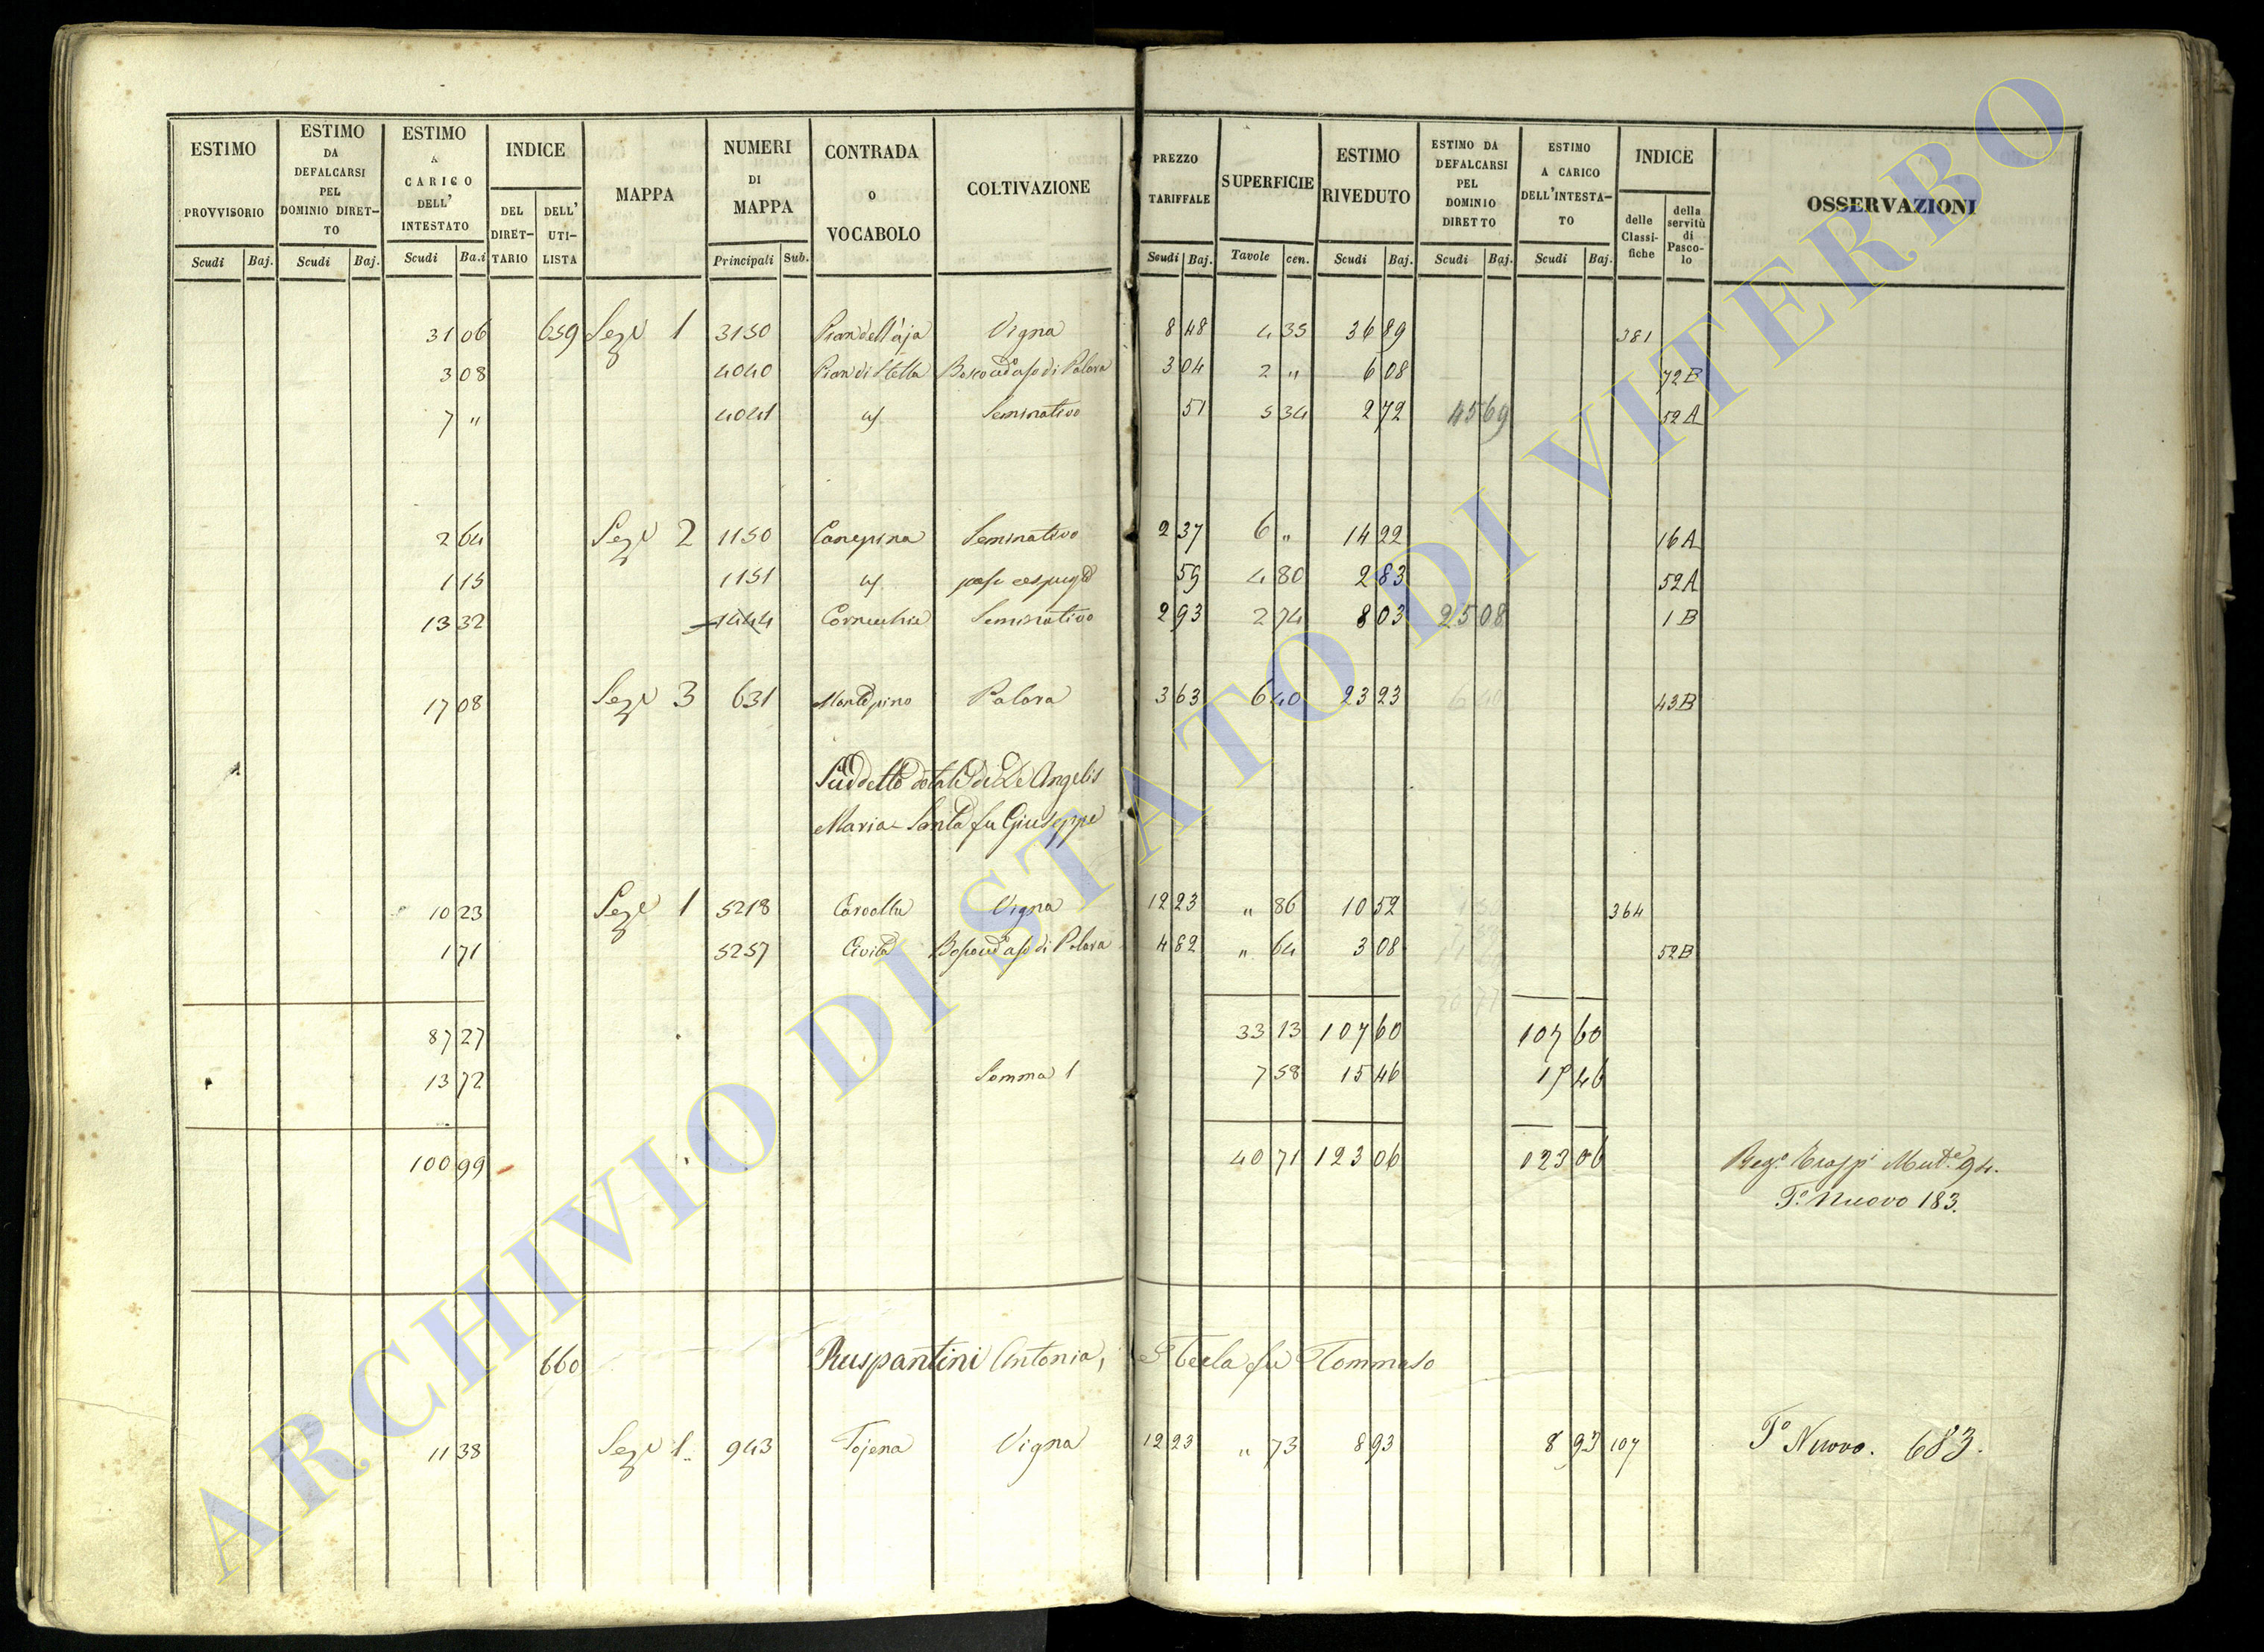 ESTIMO PROVVISORIO | ESTIMO DA DEFALCARSI PEL DOMINIO DIRETTO | ESTIMO A CARICO DELL' INTESTATO | INDICE | MAPPA | NUMERI DI MAPPA | CONTRADA O VOCABOLO | COLTIVAZIONE | PREZZO TARIFFALE | SUPERFICIE | ESTIMO RIVEDUTO | ESTIMO DA DEFALCARSI PEL DOMINIO DIRETTO | ESTIMO A CARICO DELL'INTESTATO | INDICE | OSSERVAZIONI
DEL DIRETTARIO | DELL' UTILISTA | delle Classifiche | della servitù di Pascolo
Scudi | Baj. | Scudi | Baj. | Scudi | Ba.i | Principali | Sub. | Scudi | Baj. | Tavole | cen. | Scudi | Baj. | Scudi | Baj. | Scudi | Baj.
31 06 | 659 | Seze 1 | 3150 | Pian dell'aja | Vigna | 8 48 | 4 35 | 36 89 | 381
3 08 | 4040 | Pian di Stella | 3 04 | 2 " | 6 08 | 72 B
7 " | 4041 | Seminativo | 51 | 5 34 | 2 72 | 45 69 | 52 A
2 64 | Seze 2 | 1150 | Canepina | Seminativo | 2 37 | 6 " | 14 22 | 16 A
1 15 | 1151 | 59 | 4 80 | 2 83 | 52 A
13 32 | 1444 | Cornecchia | Seminativo | 2 93 | 2 74 | 8 03 | 25 08 | 1 B
17 08 | Seze 3 | 631 | Montepino | Palara | 3 63 | 6 40 | 23 23 | 6 40 | 43 B
Suddetto dotale di De Angelis
Maria Santa fu Giuseppe
10 23 | Seze 1 | 5218 | Vigna | 12 23 | " 86 | 10 52 | 364
1 71 | 5257 | Civita | 4 82 | " 64 | 3 08 | 52 B
87 27 | 33 13 | 107 60 | 107 60
13 72 | Somma 1 | 7 58 | 15 46 | 15 46
100 99 | 40 71 | 123 06 | 123 06 | 94.
T.º Nuovo 183.
660 | Ruspantini Antonia, Tecla fu Tommaso
11 38 | Seze 1 | 943 | Tojena | Vigna | 12 23 | " 73 | 8 93 | 8 93 | 107 | T.º Nuovo. 683.
ARCHIVIO DI STATO DI VITERBO